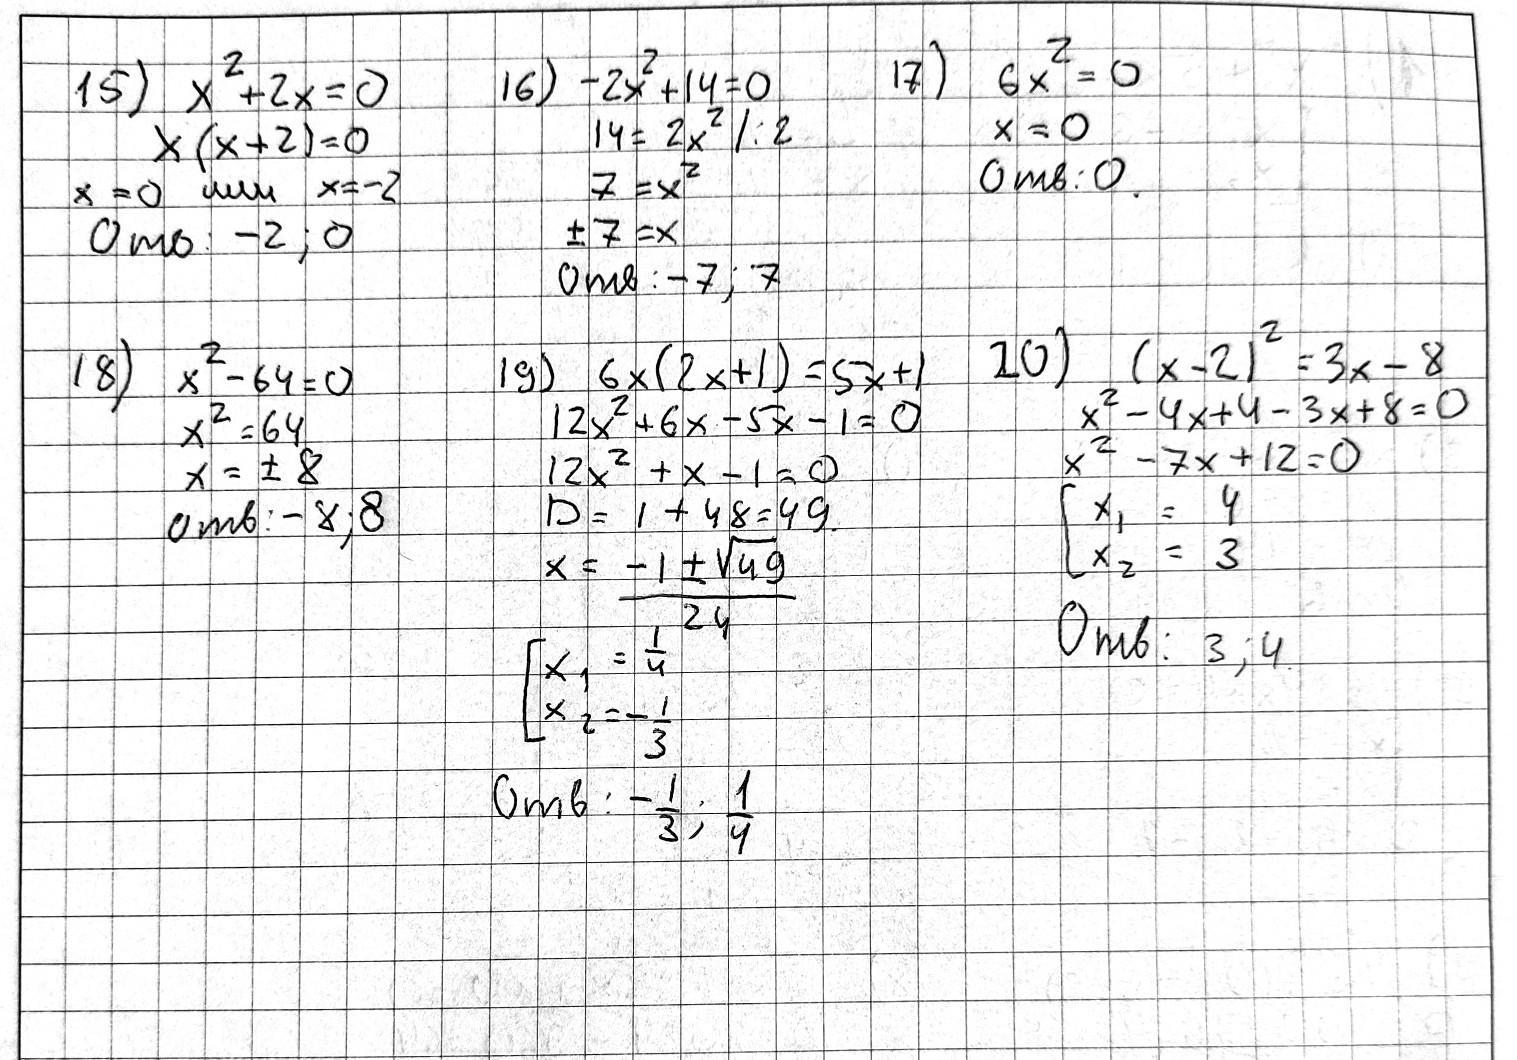 15) x²+2x=0
x(x+2)=0
x=0 или x=-2
Отв: -2; 0
16) -2x²+14=0
14=2x² /:2
7=x²
±7=x
Отв: -7; 7
17) 6x²=0
x=0
Отв: 0.
18) x²-64=0
x²=64
x=±8
Отв: -8; 8
19) 6x(2x+1)=5x+1
12x²+6x-5x-1=0
12x²+x-1=0
D=1+48=49.
x= (-1±√49)/24
[x₁=1/4
x₂=-1/3
Отв: -1/3; 1/4
20) (x-2)²=3x-8
x²-4x+4-3x+8=0
x²-7x+12=0
[x₁=4
x₂=3
Отв: 3; 4.